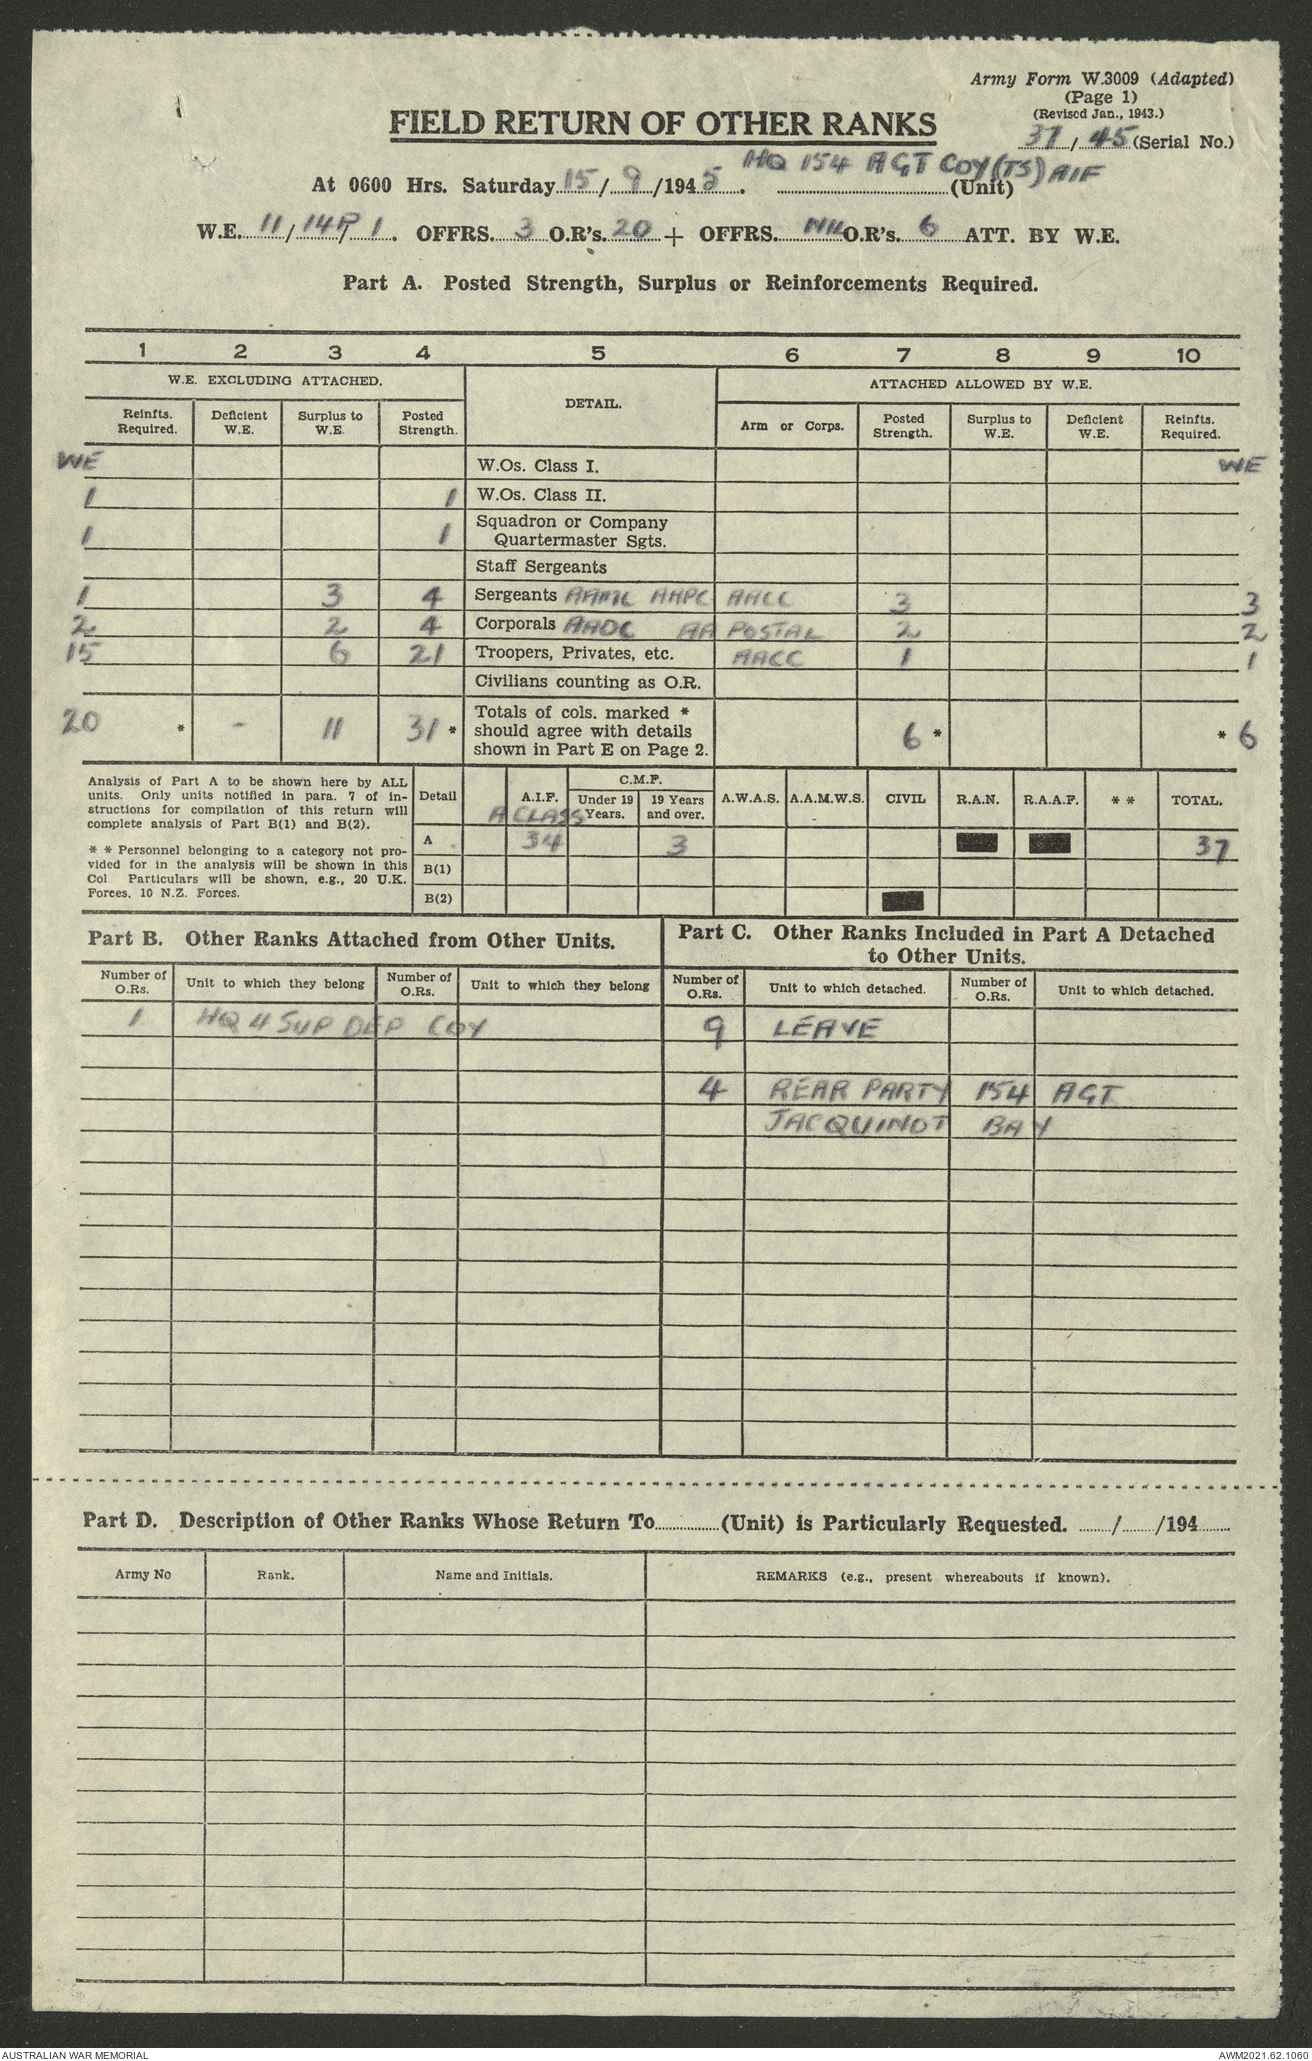 Army Form W.3009 (Adapted)
(Page 1)
(Revised Jan., 1943.)
37 / 45 (Serial No.)
FIELD RETURN OF OTHER RANKS
HQ 154 AGT COY (TS) AIF
At 0600 Hrs. Saturday 15 / 9 /1945. (Unit)
W.E. 11 / 14P / 1. OFFRS. 3 O.R's. 20 + OFFRS. NIL O.R's. 6 ATT. BY W.E.
Part A. Posted Strength, Surplus or Reinforcements Required.
1 2 3 4 5 6 7 8 9 10
W.E. EXCLUDING ATTACHED. DETAIL. ATTACHED ALLOWED BY W.E.
Reinfts. Required. Deficient W.E. Surplus to W.E. Posted Strength. Arm or Corps. Posted Strength. Surplus to W.E. Deficient W.E. Reinfts. Required.
WE W.Os. Class I. WE
1 1 W.Os. Class II.
1 1 Squadron or Company
Quartermaster Sgts.
Staff Sergeants
1 3 4 Sergeants AAMC AAPC AACC 3 3
2 2 4 Corporals AAOC AA POSTAL 2 2
15 6 21 Troopers, Privates, etc. AACC 1 1
Civilians counting as O.R.
20 * - 11 31 * Totals of cols. marked * should agree with details shown in Part E on Page 2. 6 * * 6
Analysis of Part A to be shown here by ALL
units. Only units notified in para. 7 of in-
structions for compilation of this return will
complete analysis of Part B(1) and B(2).
* * Personnel belonging to a category not pro-
vided for in the analysis will be shown in this
Col Particulars will be shown, e.g., 20 U.K.
Forces, 10 N.Z. Forces.
Detail A.I.F. C.M.F. Under 19 Years. 19 Years and over. A.W.A.S. A.A.M.W.S. CIVIL R.A.N. R.A.A.F. * * TOTAL.
A CLASS
A 34 3 37
B(1)
B(2)
Part B. Other Ranks Attached from Other Units.
Number of O.Rs. Unit to which they belong Number of O.Rs. Unit to which they belong
1 HQ 4 SUP DEP COY
Part C. Other Ranks Included in Part A Detached
to Other Units.
Number of O.Rs. Unit to which detached. Number of O.Rs. Unit to which detached.
9 LEAVE
4 REAR PARTY 154 AGT
JACQUINOT BAY
Part D. Description of Other Ranks Whose Return To............(Unit) is Particularly Requested. ......./......./194.......
Army No Rank. Name and Initials. REMARKS (e.g., present whereabouts if known).
AUSTRALIAN WAR MEMORIAL AWM2021.62.1060